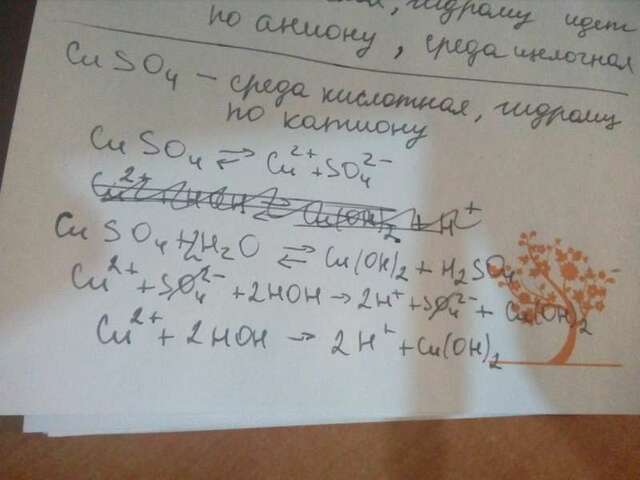 гидролиз идет
по аниону, среда щелочная
CuSO₄ – среда кислотная, гидролиз
по катиону
CuSO₄ ⇄ Cu²⁺ + SO₄²⁻
Cu²⁺ + HOH ⇄ Cu(OH)₂ + H⁺
CuSO₄ + 2H₂O ⇄ Cu(OH)₂ + H₂SO₄
Cu²⁺ + SO₄²⁻ + 2HOH → 2H⁺ + SO₄²⁻ + Cu(OH)₂
Cu²⁺ + 2HOH → 2H⁺ + Cu(OH)₂